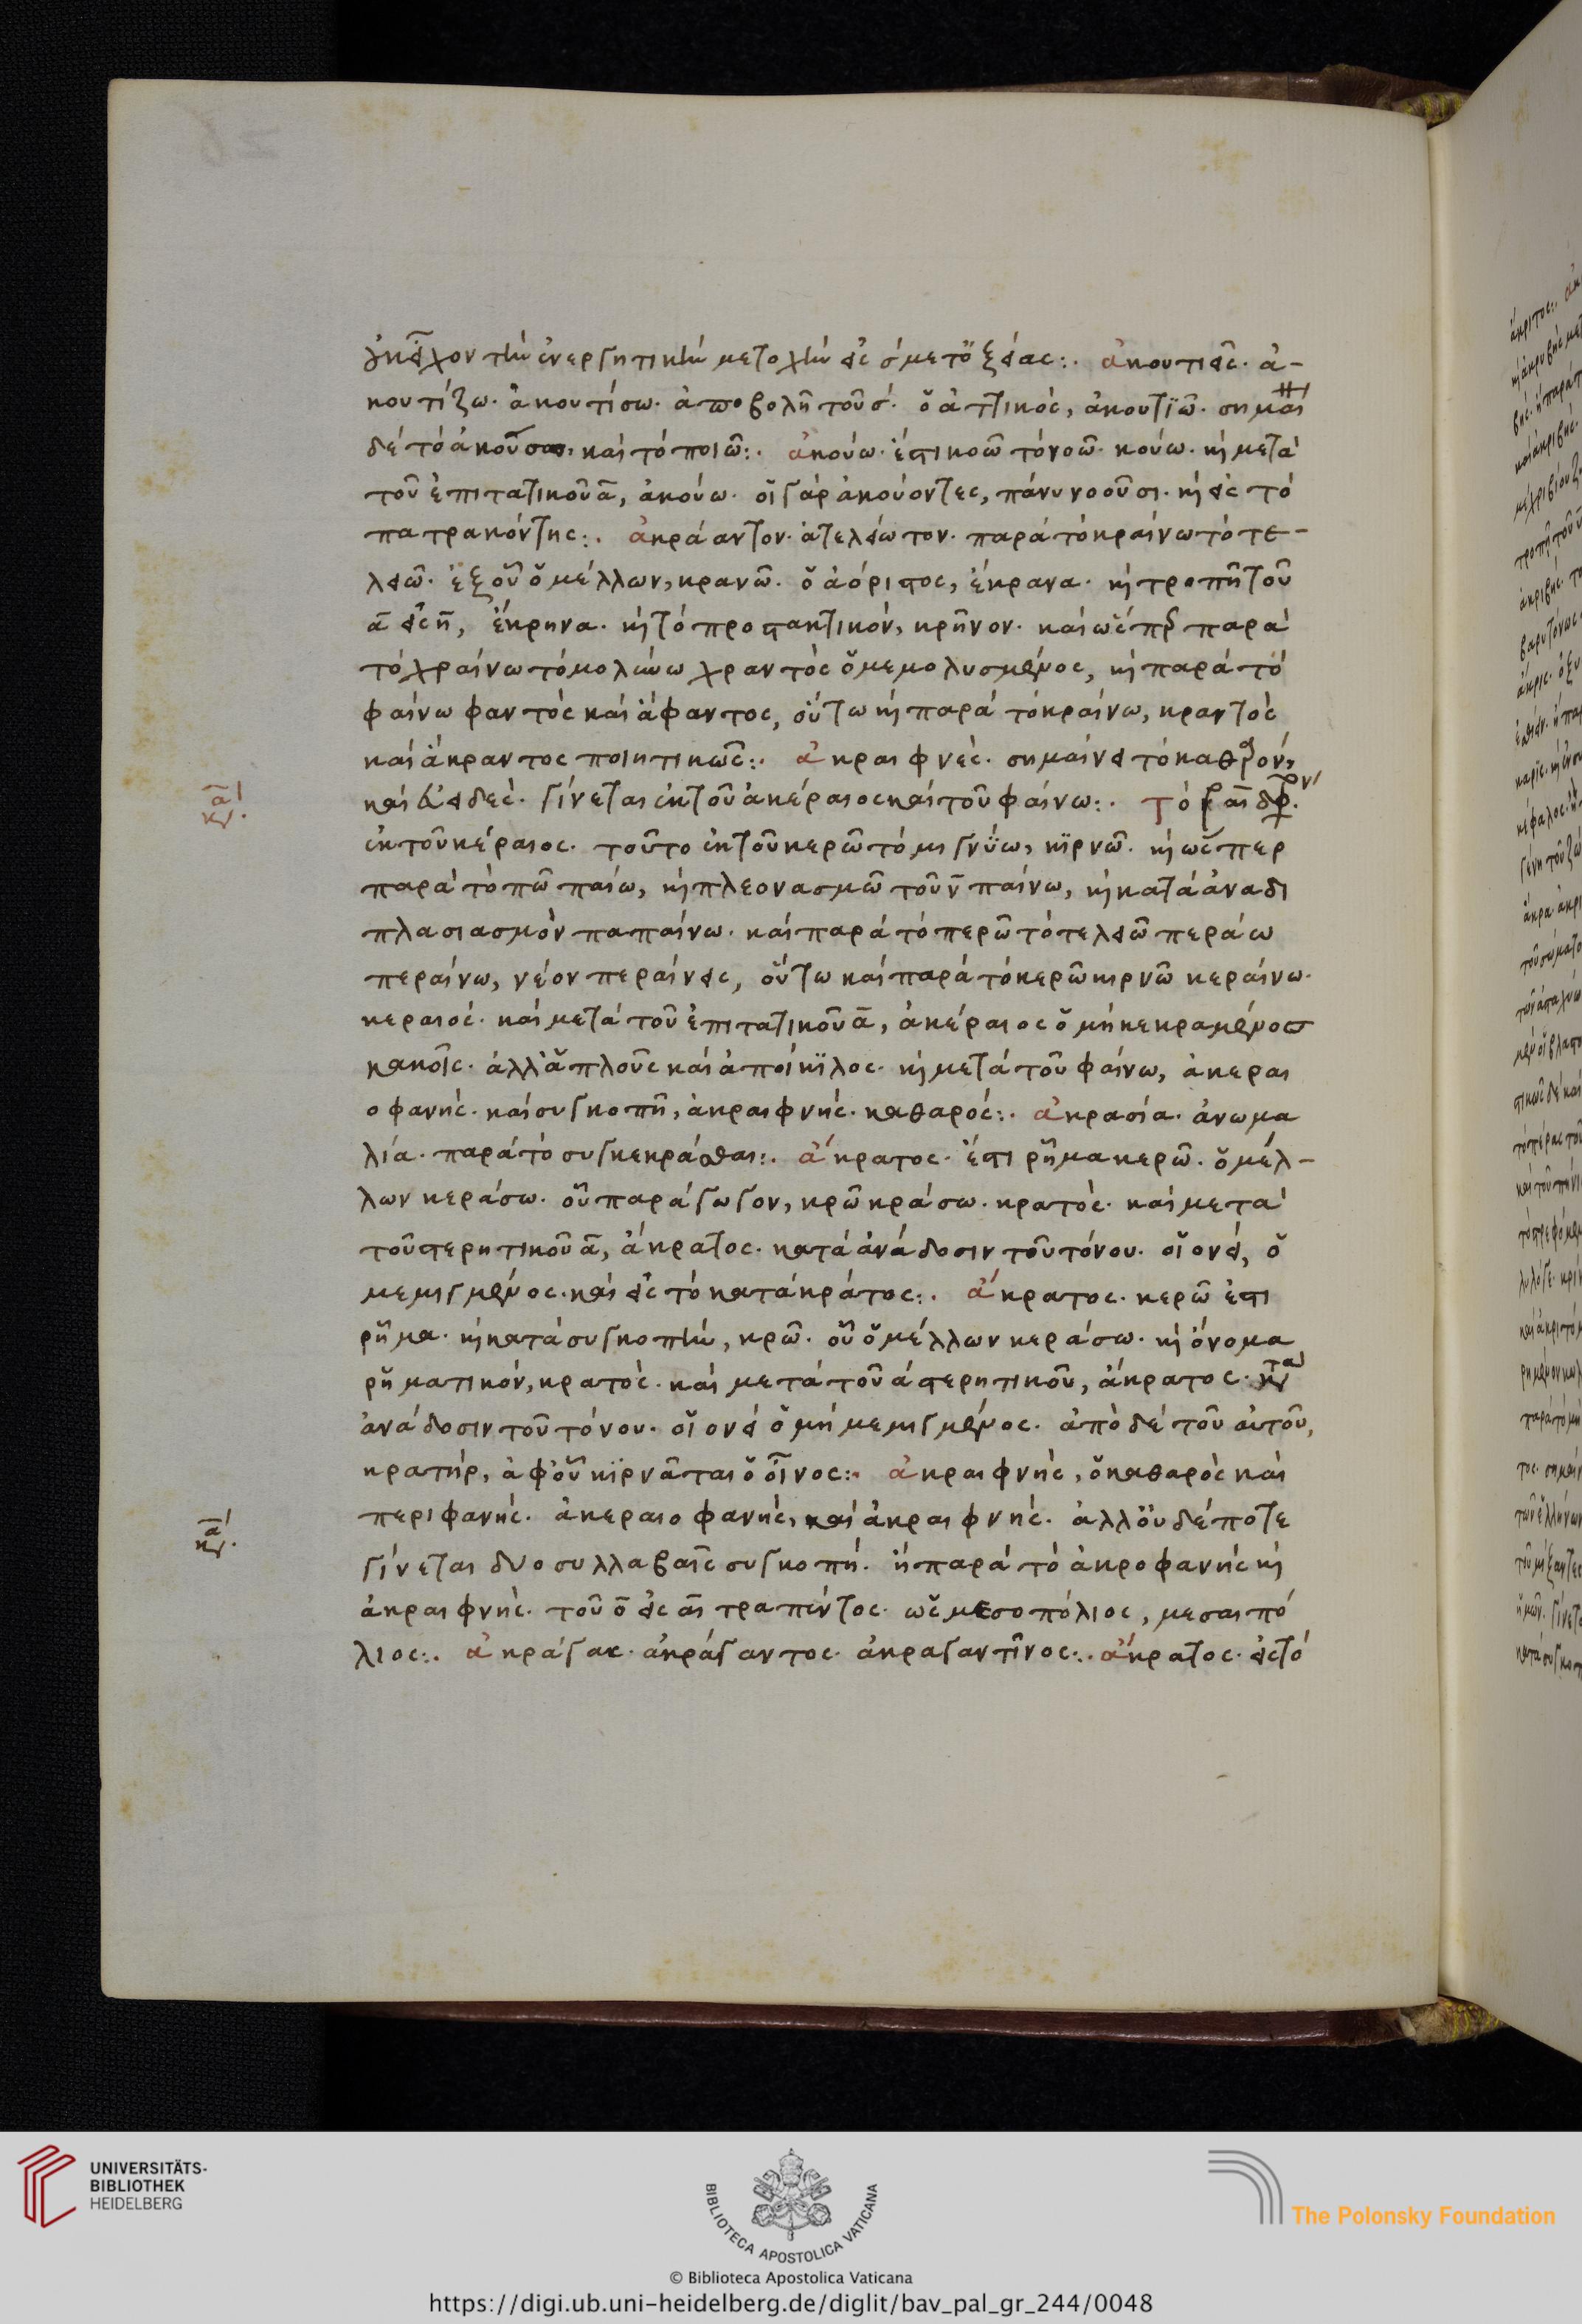 τὴν ἐνεργητικὴν μετοχὴν εἰς σ μετὸ ξείας:. ἀκοντιεῖς. ἀ-
κοντίζω. ἀκοντίσω. ἀποβολῆ τοῦ σ. ὁ ἀττικὸς, ἀκοντιῶ. σημαί
δὲ τὸ ἀκοῦσαι, καὶ τὸ ποιῶ:. ἀκούω. ἔστι κοῶ τὸ νοῶ. κούω. κὶ μετὰ
τοῦ ἐπιτατικοῦ ᾱ, ἀκούω. οἱ γὰρ ἀκούοντες, πάνυ νοοῦσι. κὶ εἰς τὸ
πατρακόντης:. ἀκράαντον. ἀτελείωτον. παρὰ τὸ κραίνω τὸ τε-
λειῶ. ἐξ οὗ ὁ μέλλων, κρανῶ. ὁ ἀόριστος, ἔκρανα. κὶ τροπῆ τοῦ
ᾱ εἰς η̄, ἔκρηνα. κὶ τὸ προστακτικὸν, κρῆνον. καὶ ὥσπερ παρὰ
τὸ χραίνω τὸ μολύνω χραντὸς ὁ μεμολυσμένος, κὶ παρὰ τὸ
φαίνω φαντὸς καὶ ἄφαντος, οὕτω κὶ παρὰ τὸ κραίνω, κραντὸς
καὶ ἄκραντος ποιητικῶς:. ἀκραιφνὲς. σημαίνει τὸ καθαρὸν,
κα
καὶ ἀειδὲς. γίνεται ἐκ τοῦ ἀκέραιος καὶ τοῦ φαίνω:. τὸ
ἐκ τοῦ κέραιος. τοῦτο ἐκ τοῦ κερῶ τὸ μιγνύω, κιρνῶ. κὶ ὥσπερ
παρὰ τὸ πῶ παίω, κὶ πλεονασμῶ τοῦ ν̄ παίνω, κὶ κατὰ ἀναδι
πλασιασμὸν παπαίνω. καὶ παρὰ τὸ περῶ τὸ τελειῶ περάω
περαίνω, νέον περαίνεις, οὕτω καὶ παρὰ τὸ κερῶ κιρνῶ κεραίνω.
κεραιός. καὶ μετὰ τοῦ ἐπιτατικοῦ ᾱ, ἀκέραιος ὁ μὴ κεκραμένος
κακοῖς. ἀλλ' ἁπλοῦς καὶ ἀποίκιλος. κὶ μετὰ τοῦ φαίνω, ἀκεραι
οφανής. καὶ συγκοπῆ, ἀκραιφνής. καθαρός:. ἀκρασία. ἀνωμα
λία. παρὰ τὸ συγκεκράσθαι:. ἄκρατος. ἔστι ῥῆμα κερῶ. ὁ μέλ-
λων κεράσω. οὗ παράγωγον, κρῶ κράσω. κρατὸς. καὶ μετὰ
τοῦ στερητικοῦ ᾱ, ἄκρατος. κατὰ ἀνάδοσιν τοῦ τόνου. οἱονεὶ, ὁ
μεμιγμένος. καὶ εἰς τὸ κατάκράτος:. ἄκρατος. κερῶ ἐστι
ῥῆμα. κὶ κατὰ συγκοπὴν, κρῶ. οὗ ὁ μέλλων κεράσω. κὶ ὄνομα
ῥηματικὸν, κρατὸς. καὶ μετὰ τοῦ ἀ στερητικοῦ, ἄκρατος. κατὰ
ἀνάδοσιν τοῦ τόνου. οἱονεὶ ὁ μὴ μεμιγμένος. ἀπὸ δὲ τοῦ αὐτοῦ,
κρατήρ, ἀφ' οὗ κιρνᾶται ὁ οἶνος:. ἀκραιφνής, ὁ καθαρὸς καὶ
περιφανής. ἀκεραιοφανής, καὶ ἀκραιφνής. ἀλλ' οὐδέποτε
κα
γίνεται δυοσυλλαβαῖς συγκοπή. ἢ παρὰ τὸ ἀκροφανής κὶ
ἀκραιφνής. τοῦ ō εἰς αι τραπέντος. ὡς μεσοπόλιος, μεσαιπό
λιος:. ἀκράγας. ἀκράγαντος. ἀκραγαντῖνος:. ἄκρατος. εἰς τὸ
UNIVERSITÄTS-
BIBLIOTHEK
HEIDELBERG
BIBLIOTECA APOSTOLICA VATICANA
The Polonsky Foundation
© Biblioteca Apostolica Vaticana
https://digi.ub.uni-heidelberg.de/diglit/bav_pal_gr_244/0048